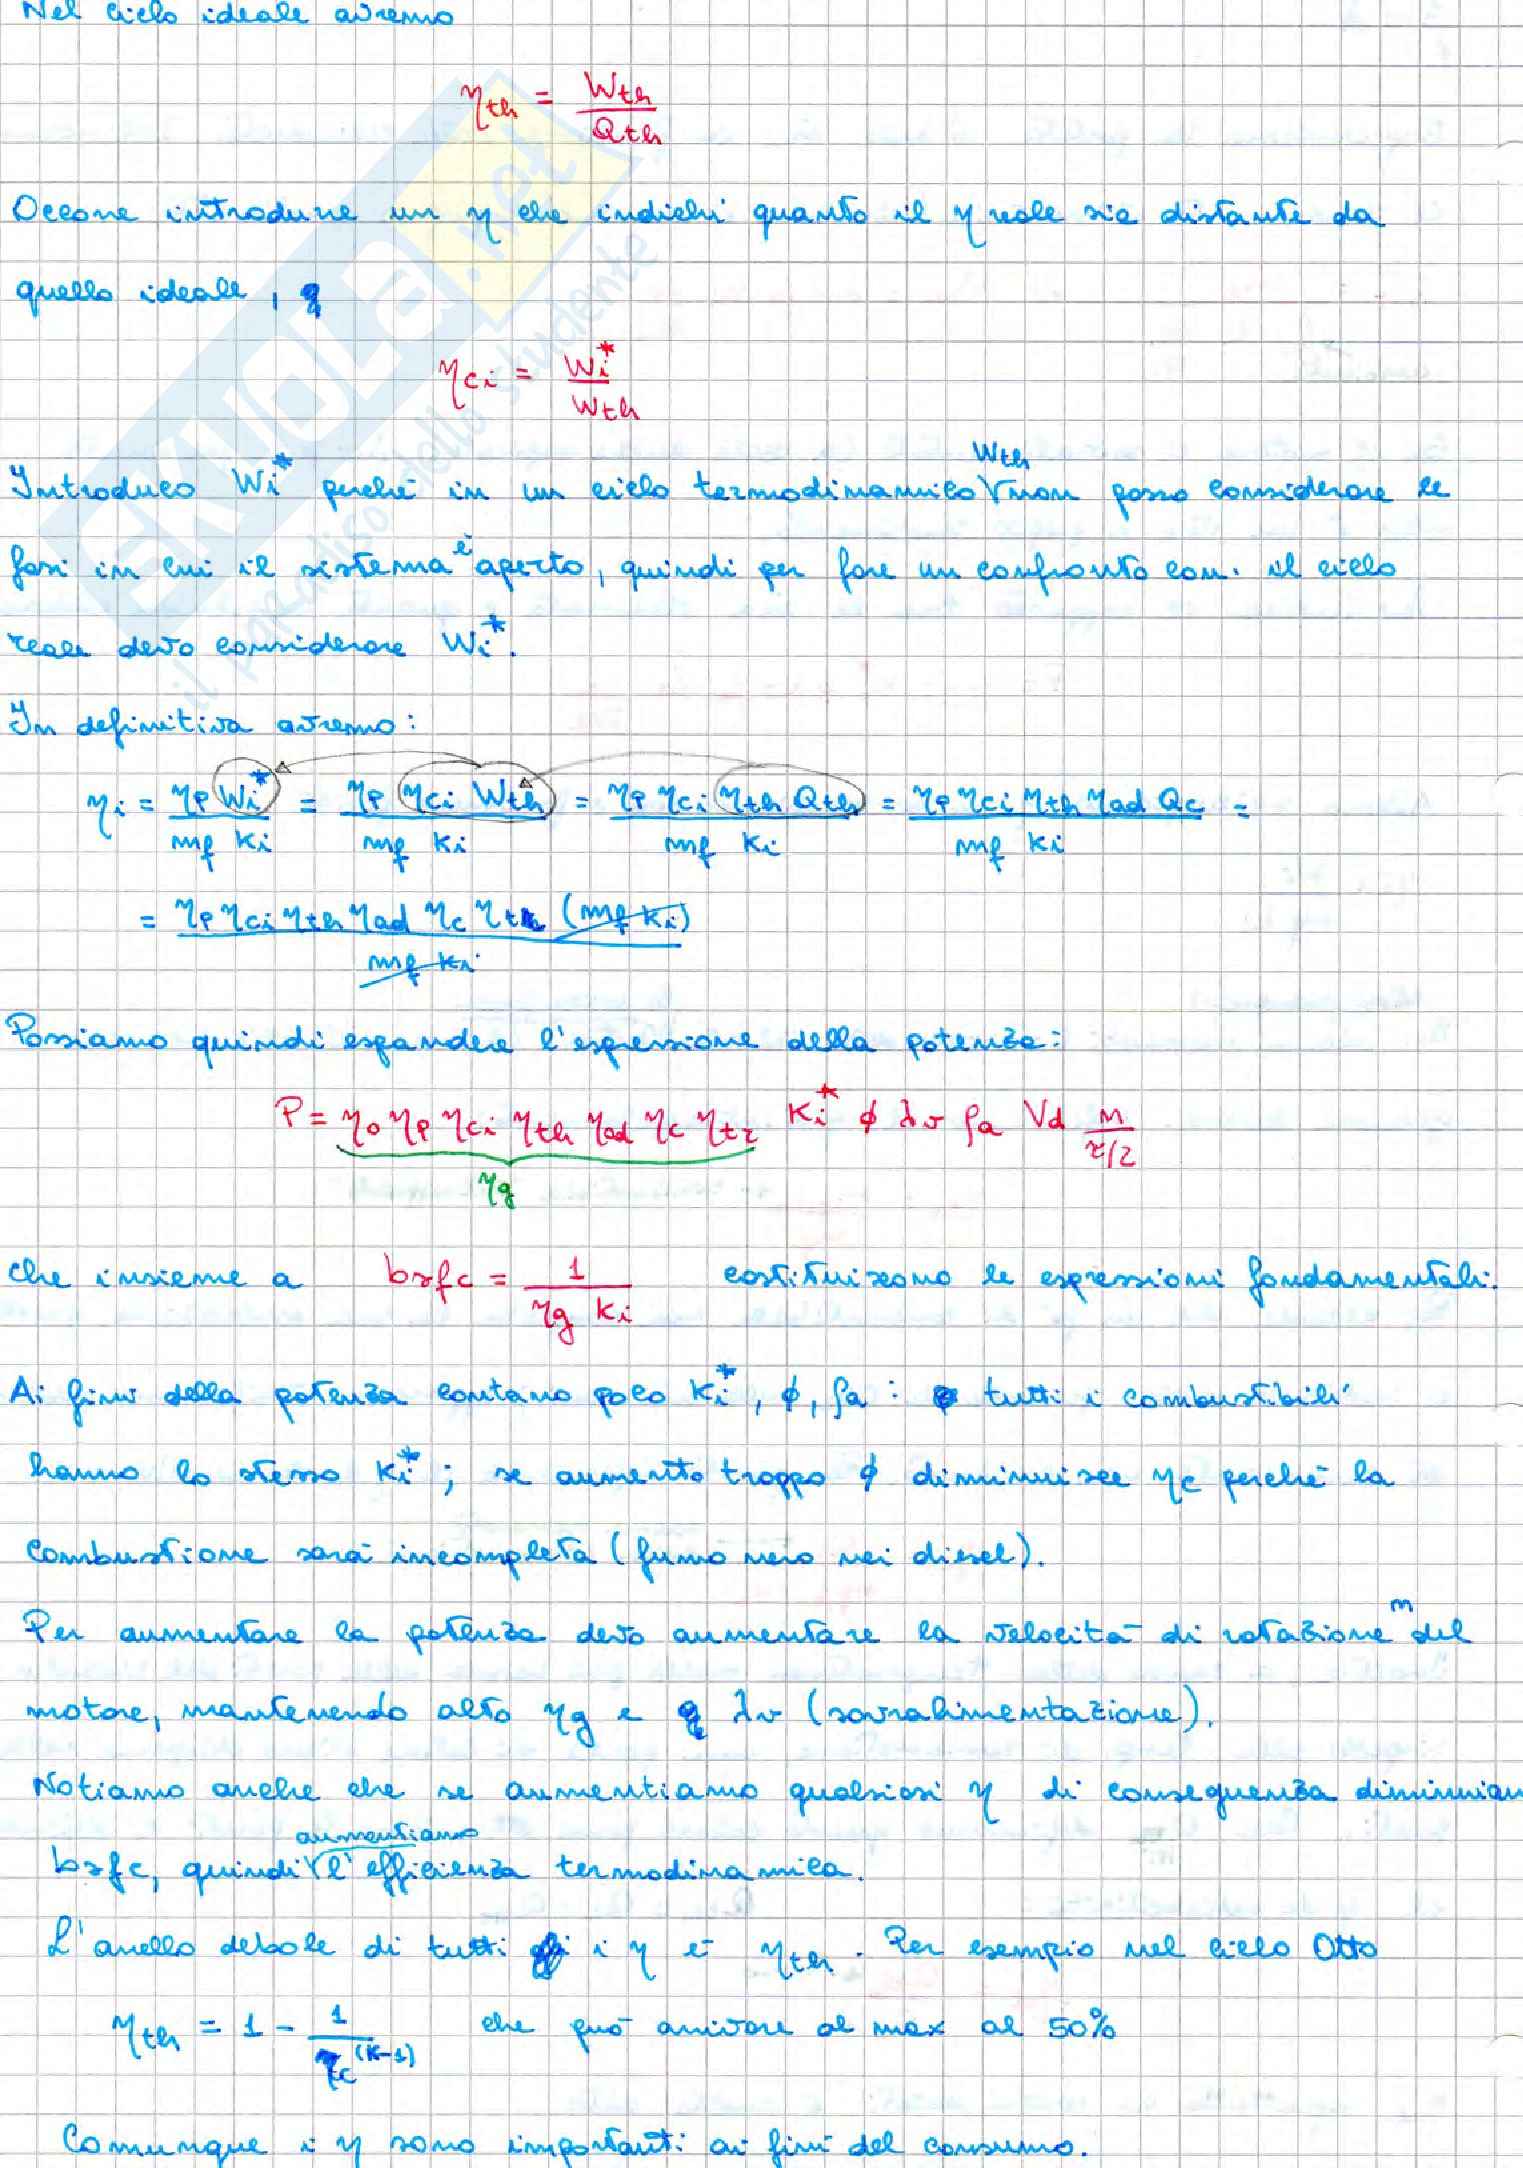 Nel ciclo ideale avremo
η_th = W_th / Q_th
Occorre introdurre un η che indichi quanto il η reale sia distante da
quello ideale,
η_ci = W_i^* / W_th
W_th
Introduco W_i^* perché in un ciclo termodinamico non posso considerare le
fasi in cui il sistema è aperto, quindi per fare un confronto con. il ciclo
reale devo considerare W_i^*.
In definitiva avremo:
η_i = η_p W_i^* / m_f K_i = η_p η_ci W_th / m_f K_i = η_p η_ci η_th Q_th / m_f K_i = η_p η_ci η_th η_ad Q_c / m_f K_i =
= η_p η_ci η_th η_ad η_c η_tr (m_f K_i) / m_f K_i
Possiamo quindi espandere l'espressione della potenza:
P = η_o η_p η_ci η_th η_ad η_c η_tr K_i^* φ λ_v ρ_a V_d n / τ/2
η_g
che insieme a bsfc = 1 / η_g K_i costituiscono le espressioni fondamentali.
Ai fini della potenza contano poco K_i^*, φ, ρ_a : tutti i combustibili
hanno lo stesso K_i^*; se aumento troppo φ diminuisce η_c perché la
combustione sarà incompleta (fumo nero nei diesel).
Per aumentare la potenza devo aumentare la velocità di rotazione n del
motore, mantenendo alto η_g e λ_v (sovralimentazione).
Notiamo anche che se aumentiamo qualsiasi η di conseguenza diminuiam
aumentiamo
bsfc, quindi l'efficienza termodinamica.
L'anello debole di tutti i η è η_th. Per esempio nel ciclo Otto
η_th = 1 - 1 / r_c^(K-1) che può arrivare al max al 50%
Comunque i η sono importanti ai fini del consumo.
SKUOLA.net
il paradiso dello studente